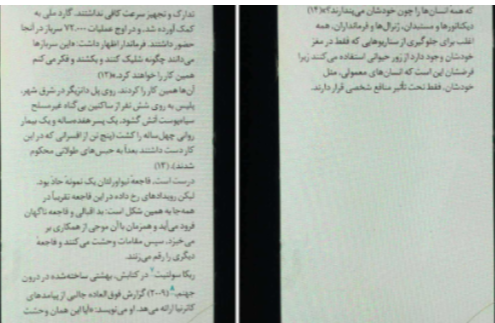 تدارک و تجهیز سرعت کافی نداشتند. گارد ملی به
کمک آورده شد. و در اوج عملیات ۷۲,۰۰۰ سرباز در آنجا
حضور داشتند. فرماندار اظهار داشت: «این سربازها
می‌دانند چگونه شلیک کنند و بکشند و فکر می‌کنم
همین کار را خواهند کرد.»(۱۲)
آن‌ها همین کار را کردند. روی پل دانزیگر در شرق شهر،
پلیس به روی شش نفر از ساکنین بی‌گناه غیرمسلح
سیاه‌پوست آتش گشود. یک پسر هفده‌ساله و یک بیمار
روانی چهل‌ساله را کشت (پنج تن از افسرانی که در این
کار دست داشتند بعداً به حبس‌های طولانی محکوم
شدند). (۱۳)
درست است. فاجعهٔ نیواورلئان یک نمونهٔ حاد بود.
لیکن رویدادهای رخ داده در این فاجعه تقریباً در
همه‌جا به همین شکل است: بد اقبالی و فاجعه ناگهان
فرود می‌آید و همزمان با آن موجی از همکاری بر
می‌خیزد. سپس مقامات وحشت می‌کنند و فاجعهٔ
دیگری را رقم می‌زنند.
ربکا سولنیت۷ در کتابش، بهشتی ساخته‌شده در درون
جهنم،۸ (۲۰۰۹) گزارش فوق‌العاده جالبی از پیامدهای
کاترینا ارائه می‌دهد. او می‌نویسد: «آیا این همان وحشت
که همه انسان‌ها را چون خودشان می‌پندارند؟»(۱۴)
دیکتاتورها و مستبدان، ژنرال‌ها و فرمانداران، همه
اغلب برای جلوگیری از سناریوهایی که فقط در مغز
خودشان وجود دارد از زور حیوانی استفاده می‌کنند زیرا
فرضشان این است که انسان‌های معمولی، مثل
خودشان، فقط تحت تأثیر منافع شخصی قرار دارند.